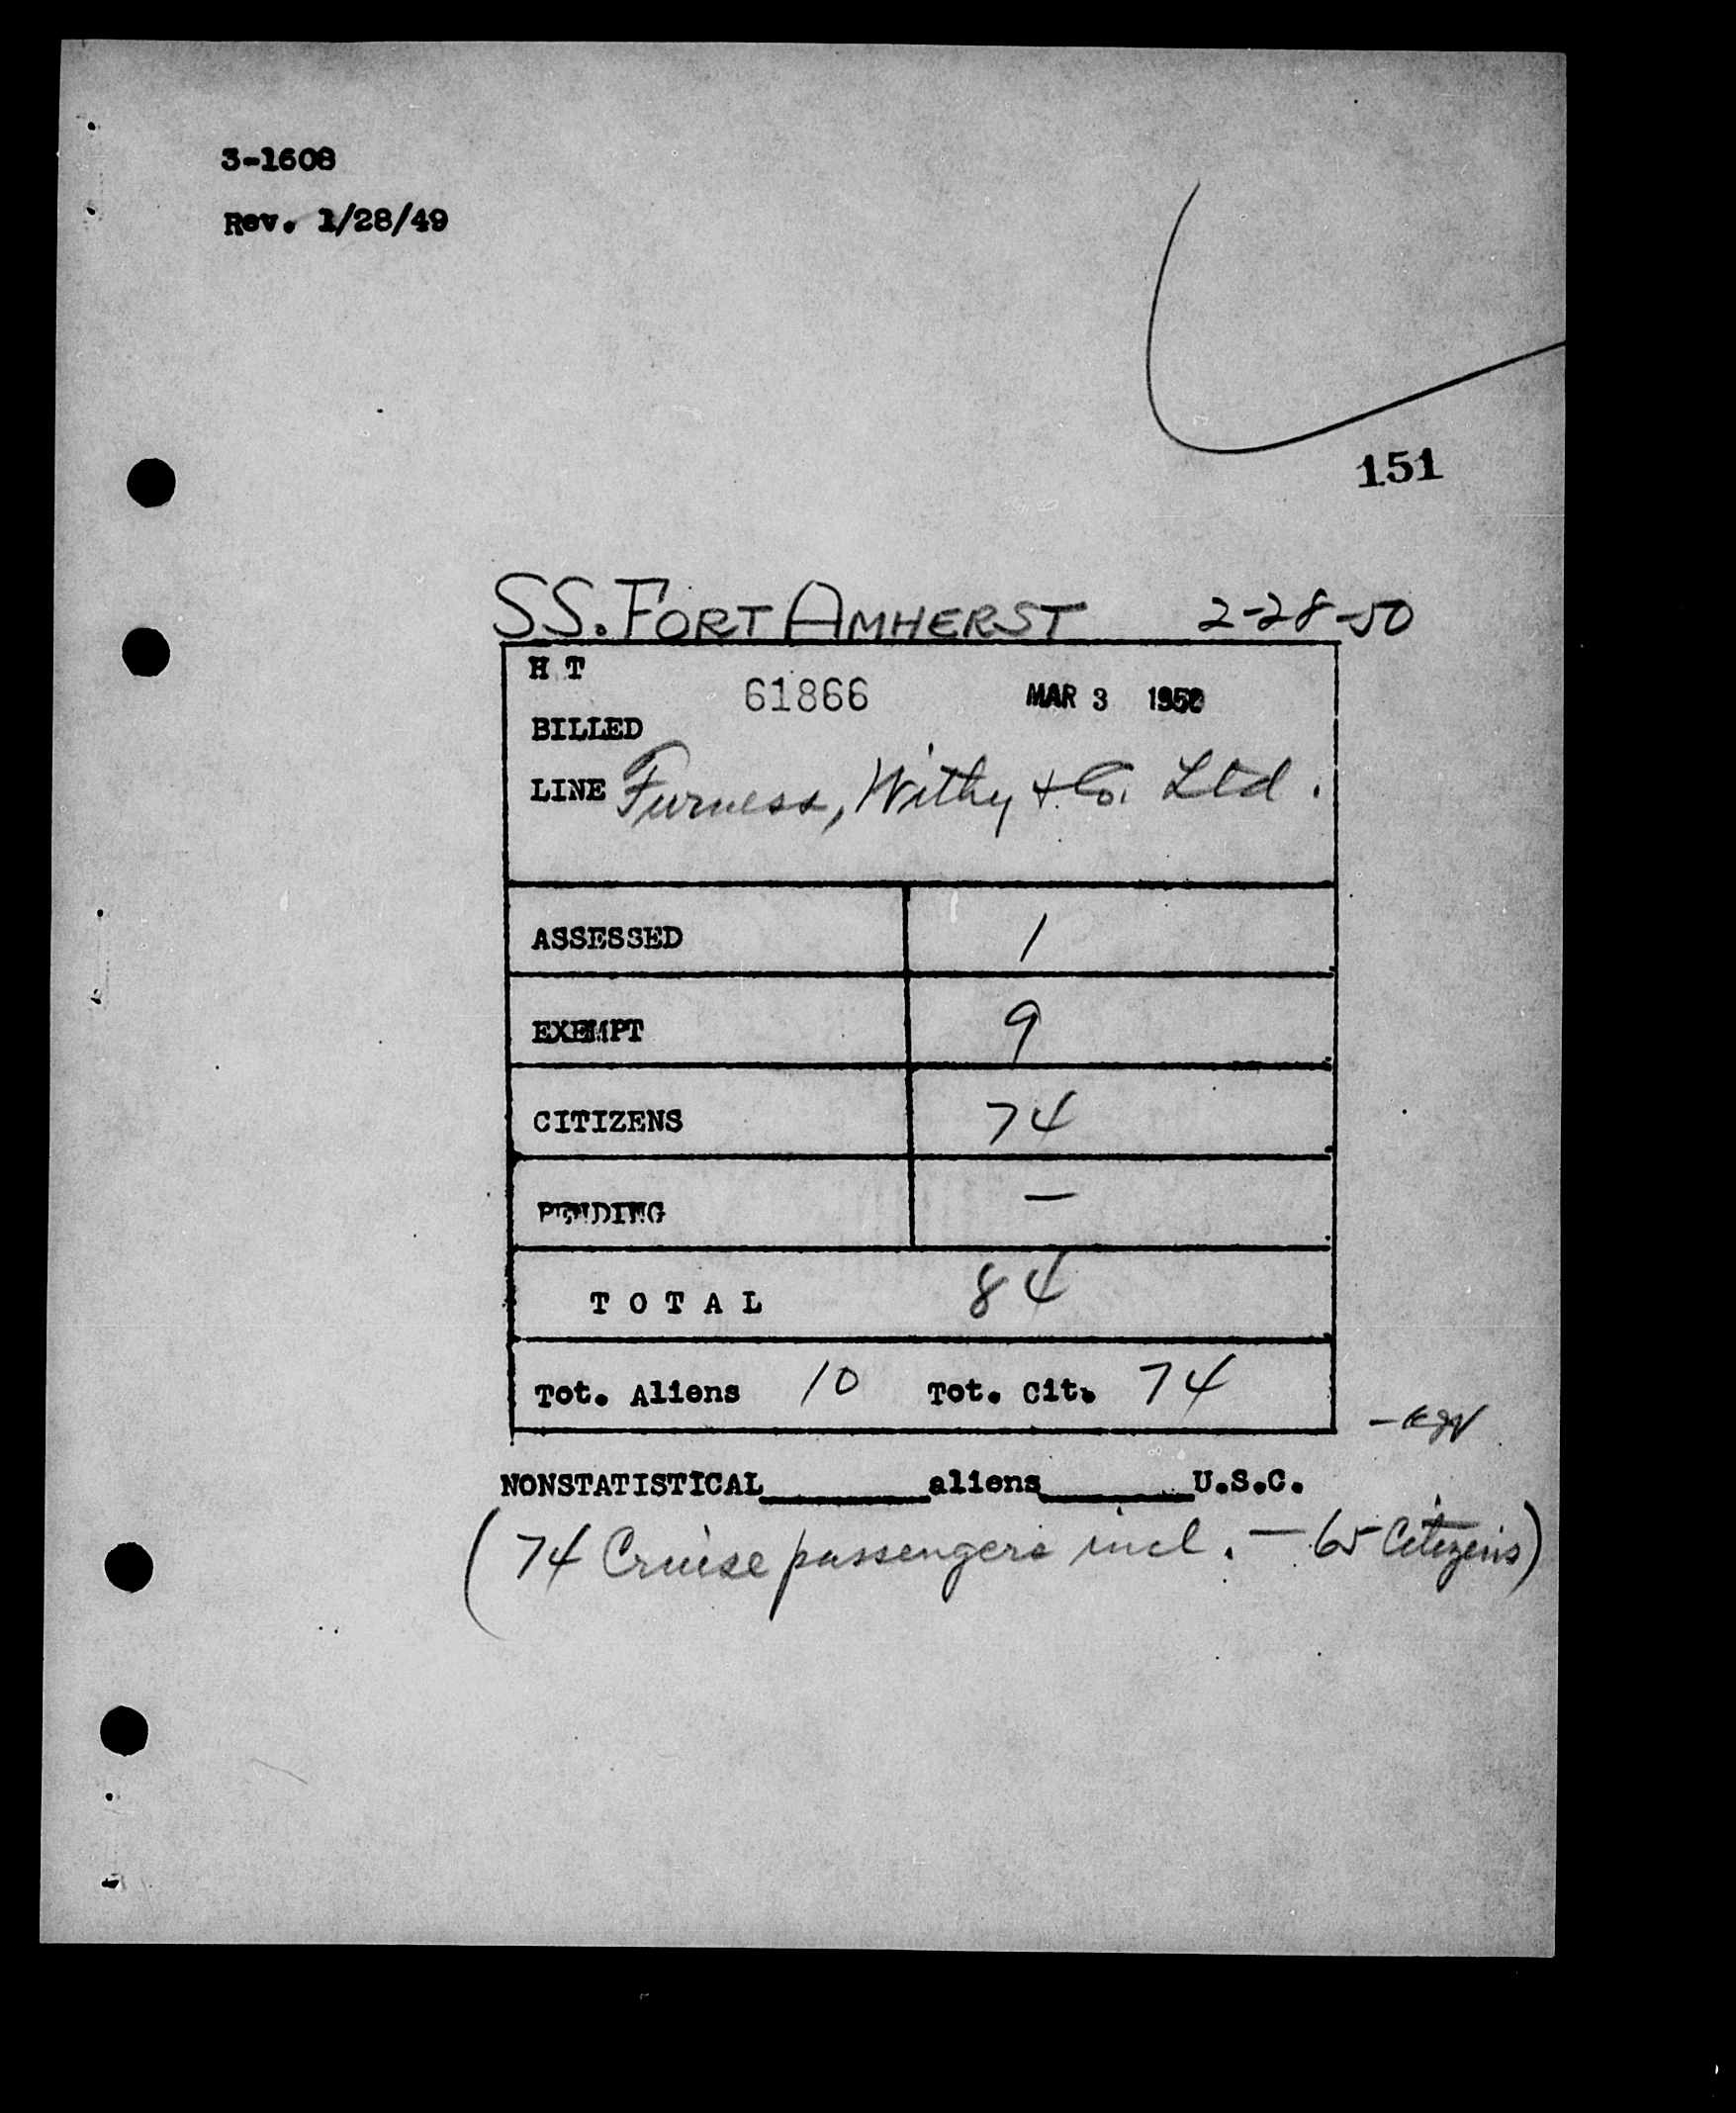 3-1608
Rev. 1/28/49
151
SS. FORT AMHERST 2-28-50
H T
61866 MAR 3 1950
BILLED
LINE Furness, Withy & Co. Ltd.
ASSESSED 1
EXEMPT 9
CITIZENS 74
PENDING —
T O T A L 84
Tot. Aliens 10 Tot. Cit. 74
NONSTATISTICAL________aliens_______U.S.C.
(74 Cruise passengers incl. — 65 Citizens)